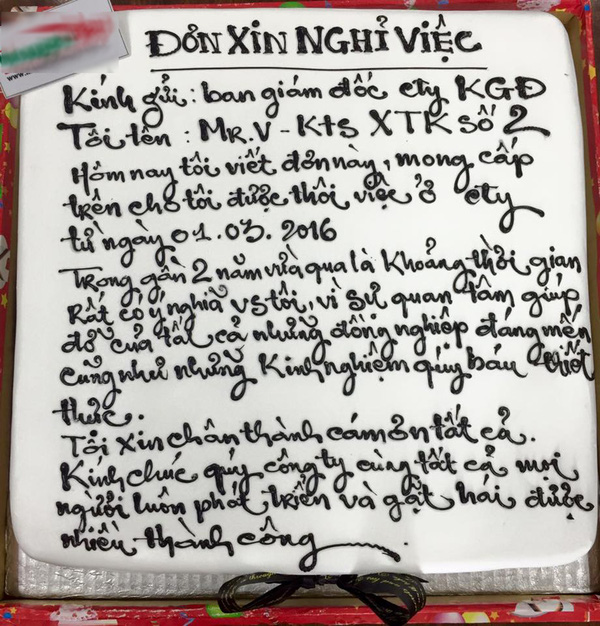 ĐƠN XIN NGHỈ VIỆC
Kính gửi: ban giám đốc cty KGĐ
Tôi tên : MR.V - Kts XTK số 2
Hôm nay tôi viết đơn này, mong cấp
trên cho tôi được thôi việc ở cty
từ ngày 01.03.2016
Trong gần 2 năm vừa qua là khoảng thời gian
Rất có ý nghĩa vs tôi, vì sự quan tâm giúp
đỡ của tất cả những đồng nghiệp đáng mến
cũng như những Kinh nghiệm quý báu thiết
thức.
Tôi xin chân thành cám ơn tất cả.
Kính chúc quý công ty cùng tất cả mọi
người luôn phát triển và gặt hái được
nhiều thành công.
www.